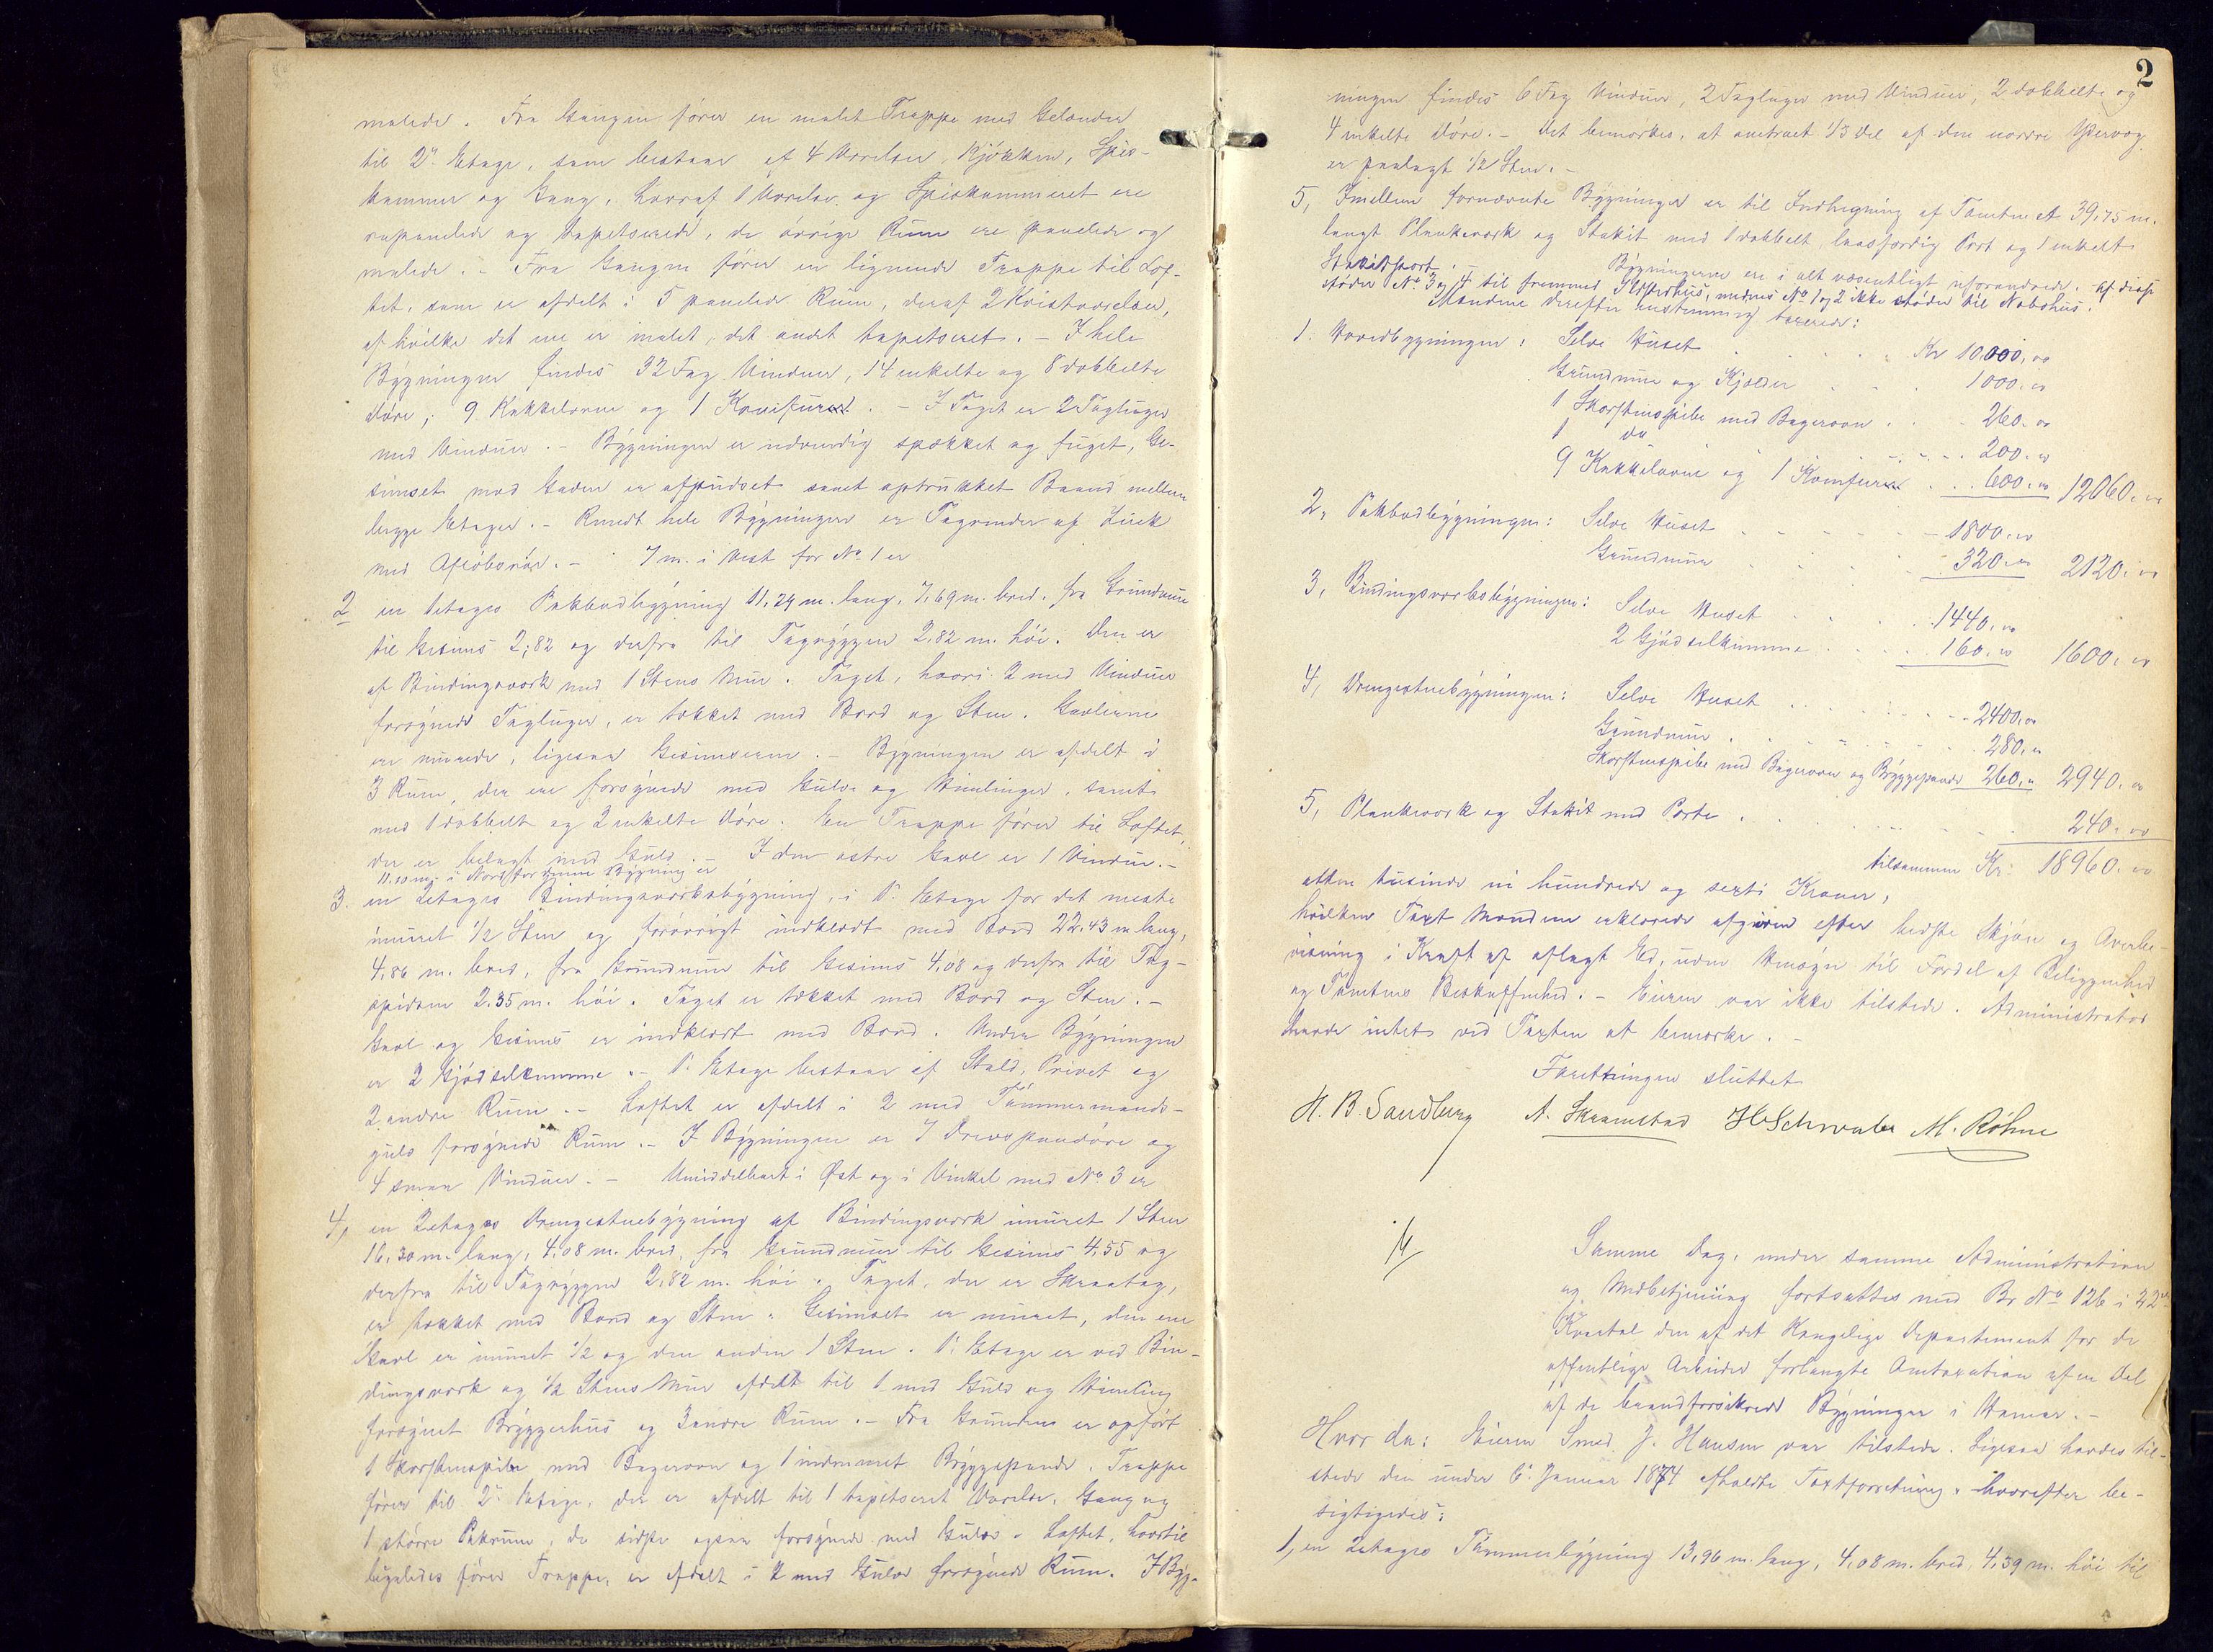 malede. Fra Gangen fører en malet Trappe med Gelænder
til 2den Etage, som bestaar af 4 Værelser, Kjøkken, Spis-
kammer og Gang, hvoraf 1 Værelse og Spiskammeret ere
upanelede og tapetserede, de øvrige Rum ere panelede og
malede. - Fra Gangen fører en lignende Trappe til Lof-
tet, som er afdelt i 5 panelede Rum, deraf 2 Kvistværelser,
af hvilke det ene er malet, det andet tapetseret. - I hele
Bygningen findes 32 Fag Vinduer, 14 enkelte og 8 dobbelte
Døre, 9 Kakkelovne og 1 Komfur. - I Taget er 2 Tagluger
med Vinduer. - Bygningen er udvendig spækket og fuget, Ge-
simset mod Gaden er afpudset samt optrukket Baand mellem
begge Etager. - Rundt hele Bygningen er Tagrender af Zink
med Afløbsrør. - 7 m. i Vest for No 1 er
2 en 1etages Pakbodbygning 11,24 m. lang, 7,69 m. bred, fra Grundmur
til Gesims 2,82 og derfra til Tagryggen 2,82 m. høi. Den er
af Bindingsværk med 1 Stens Mur. Taget, hvori 2 med Vinduer
forsynede Tagluger, er tækket med Bord og Sten. Gavlerne
ere murede, ligesaa Gesimserne. - Bygningen er afdelt i
3 Rum, der ere forsynede med Gulve og Himlinger, samt
med 1 dobbelt og 2 enkelte Døre. En Trappe fører til Loftet,
der er belagt med Gulv. - I den østre Gavl er 1 Vindue. -
11.10 m. i Nord for denne Bygning er
3. en 2etages Bindingsværksbygning, i 1ste Etage for det meste
imuret 1/2 Sten og forøvrigt indklædt med Bord 22,43 m lang,
4,86 m. bred, fra Grundmur til Gesims 4,08 og derfra til Tag-
spidsen 2.35 m. høi. Taget er tækket med Bord og Sten. -
Gavl og Gesims er indklædt med Bord. Under Bygningen
er 2 Gjødselkumme. - 1ste Etage bestaar af Stald, Privet og
2 andre Rum. - Loftet er afdelt i 2 med Tømmermands-
gulv forsynede Rum. - I Bygningen er 7 Drevspandøre og
4 smaa Vinduer. - Umiddelbart i Øst og i Vinkel med No 3 er
4, en 2etages Drengestuebygning af Bindingsværk imuret 1 Sten
16,30 m. lang, 4,08 m. bred, fra Grundmur til Gesims 4,55 og
derfra til Tagryggen 2,82 m. høi. Taget, der er Skraatag,
er tækket med Bord og Sten. Gesimset er muret, den ene
Gavl er imuret 1/2 og den anden 1 Sten. 1ste Etage er ved Bin-
dingsværk og 1/2 Stens Mur afdelt til 1 med Gulv og Himling
forsynet Bryggerhus og 3 andre Rum. - Fra Grunden er opført
1 Skorstenspibe med Bagerovn og 1 indmuret Bryggepande. Trappe
fører til 2den Etage, der er afdelt til 1 tapetseret Værelse, Gang og
1 større Pakrum, de sidste ogsaa forsynede med Gulve. Loftet, hvortil
ligeledes fører Trappe, er afdelt i 2 med Gulve forsynede Rum. I Byg-
2
ningen findes 6 Fag Vinduer, 2 Tagluger med Vinduer, 2 dobbelte og
4 enkelte Døre. - Det bemærkes, at omtrent 1/3 Del af den nordre Ydervæg
er paalagt 1/2 Sten. -
5, Imellem fornævnte Bygninger er til Indhegning af Tomten et 39,75 m.
langt Plankeværk og Stakit med 1 dobbelt, laasfærdig Port og 1 enkelt
Stakitport. - Bygningerne ere i alt væsentligt uforandrede. - Af disse
støder No 3 og 4 til fremmed Udhus, medens No 1 og 2 ikke støder til Nabohus.
Mændene derefter enstemmig taxerede:
1. Hovedbygningen: Selve Huset . . . . Kr 10,000,00
Grundmur og Kjælder . . . 1000,00
1 Skorstenspibe med Bagerovn . . . 260,00
1 do . . . 200,00
9 Kakkelovne og 1 Komfur . . . 600,00 12060,00
2, Pakbodbygningen: Selve Huset . . . 1800,00
Grundmur . . . 320,00 2120,00
3, Bindingsværksbygningen: Selve Huset . . . 1440,00
2 Gjødselkumme . . . 160,00 1600,00
4, Drengestuebygningen: Selve Huset . . . 2400,00
Grundmur . . . 280,00
Skorstenspibe med Bagerovn og Bryggepande 260,00 2940,00
5, Plankeværk og Stakit med Porte . . . 240,00
tilsammen Kr. 18960,00
atten tusinde ni hundrede og sexti Kroner,
hvilken Taxt Mændene erklærede afgiven efter bedste Skjøn og Overbe-
visning i Kraft af aflagt Ed, uden Hensyn til Fordel af Beliggenhed
og Tomtens Beskaffenhed. - Eieren var ikke tilstede. Administrator
havde intet ved Taxten at bemærke. -
Forretningen sluttet
H. B. Sandberg A. Skramstad H Schwabe M. Röhne
Samme Dag, under samme Administration
og Medbetjening fortsattes med Br No 126 i 22de
Kvartal den af det Kongelige Departement for de
offentlige Arbeider forlangte Omtaxation af en Del
af de brandforsikrede Bygninger i Hamar. -
Hvor da: Eieren Smed J. Hansen var tilstede. Ligesaa havdes til-
stede den under 6te Januar 1874 afholdte Taxtforretning, hvorefter be-
sigtigedes:
1, en 2etages Tømmerbygning 13,96 m. lang, 4,08 m. bred, 4,39 m. høi til